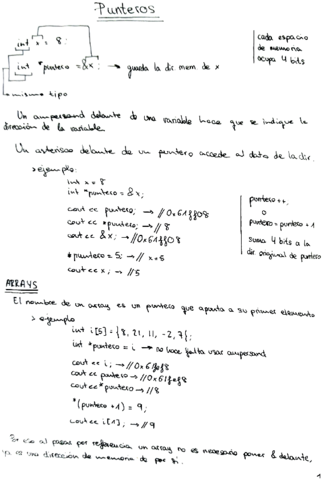 Punteros
int x = 8;
int *puntero = &x; → guarda la dir. mem. de x
mismo tipo
cada espacio
de memoria
ocupa 4 bits
Un ampersand delante de una variable hace que se indique la
dirección de la variable.
Un asterisco delante de un puntero accede al dato de la dir.
> ejemplo:
int x = 8
int *puntero = &x;
cout << puntero; → // 0x61ff08
cout << *puntero; → // 8
cout << &x; → // 0x61ff08
*puntero = 5; → // x=5
cout << x; → // 5
puntero++;
o
puntero = puntero + 1
suma 4 bits a la
dir original de puntero
ARRAYS
El nombre de un array es un puntero que apunta a su primer elemento
> ejemplo
int i[5] = {8, 21, 11, -2, 7};
int *puntero = i → no hace falta usar ampersand
cout << i; → //
cout << puntero → //
cout << *puntero → // 8
*(puntero + 1) = 9;
cout << i[1], → // 9
Por eso al pasar por referencia un array no es necesario poner & delante,
ya es una dirección de memoria de por sí.
1